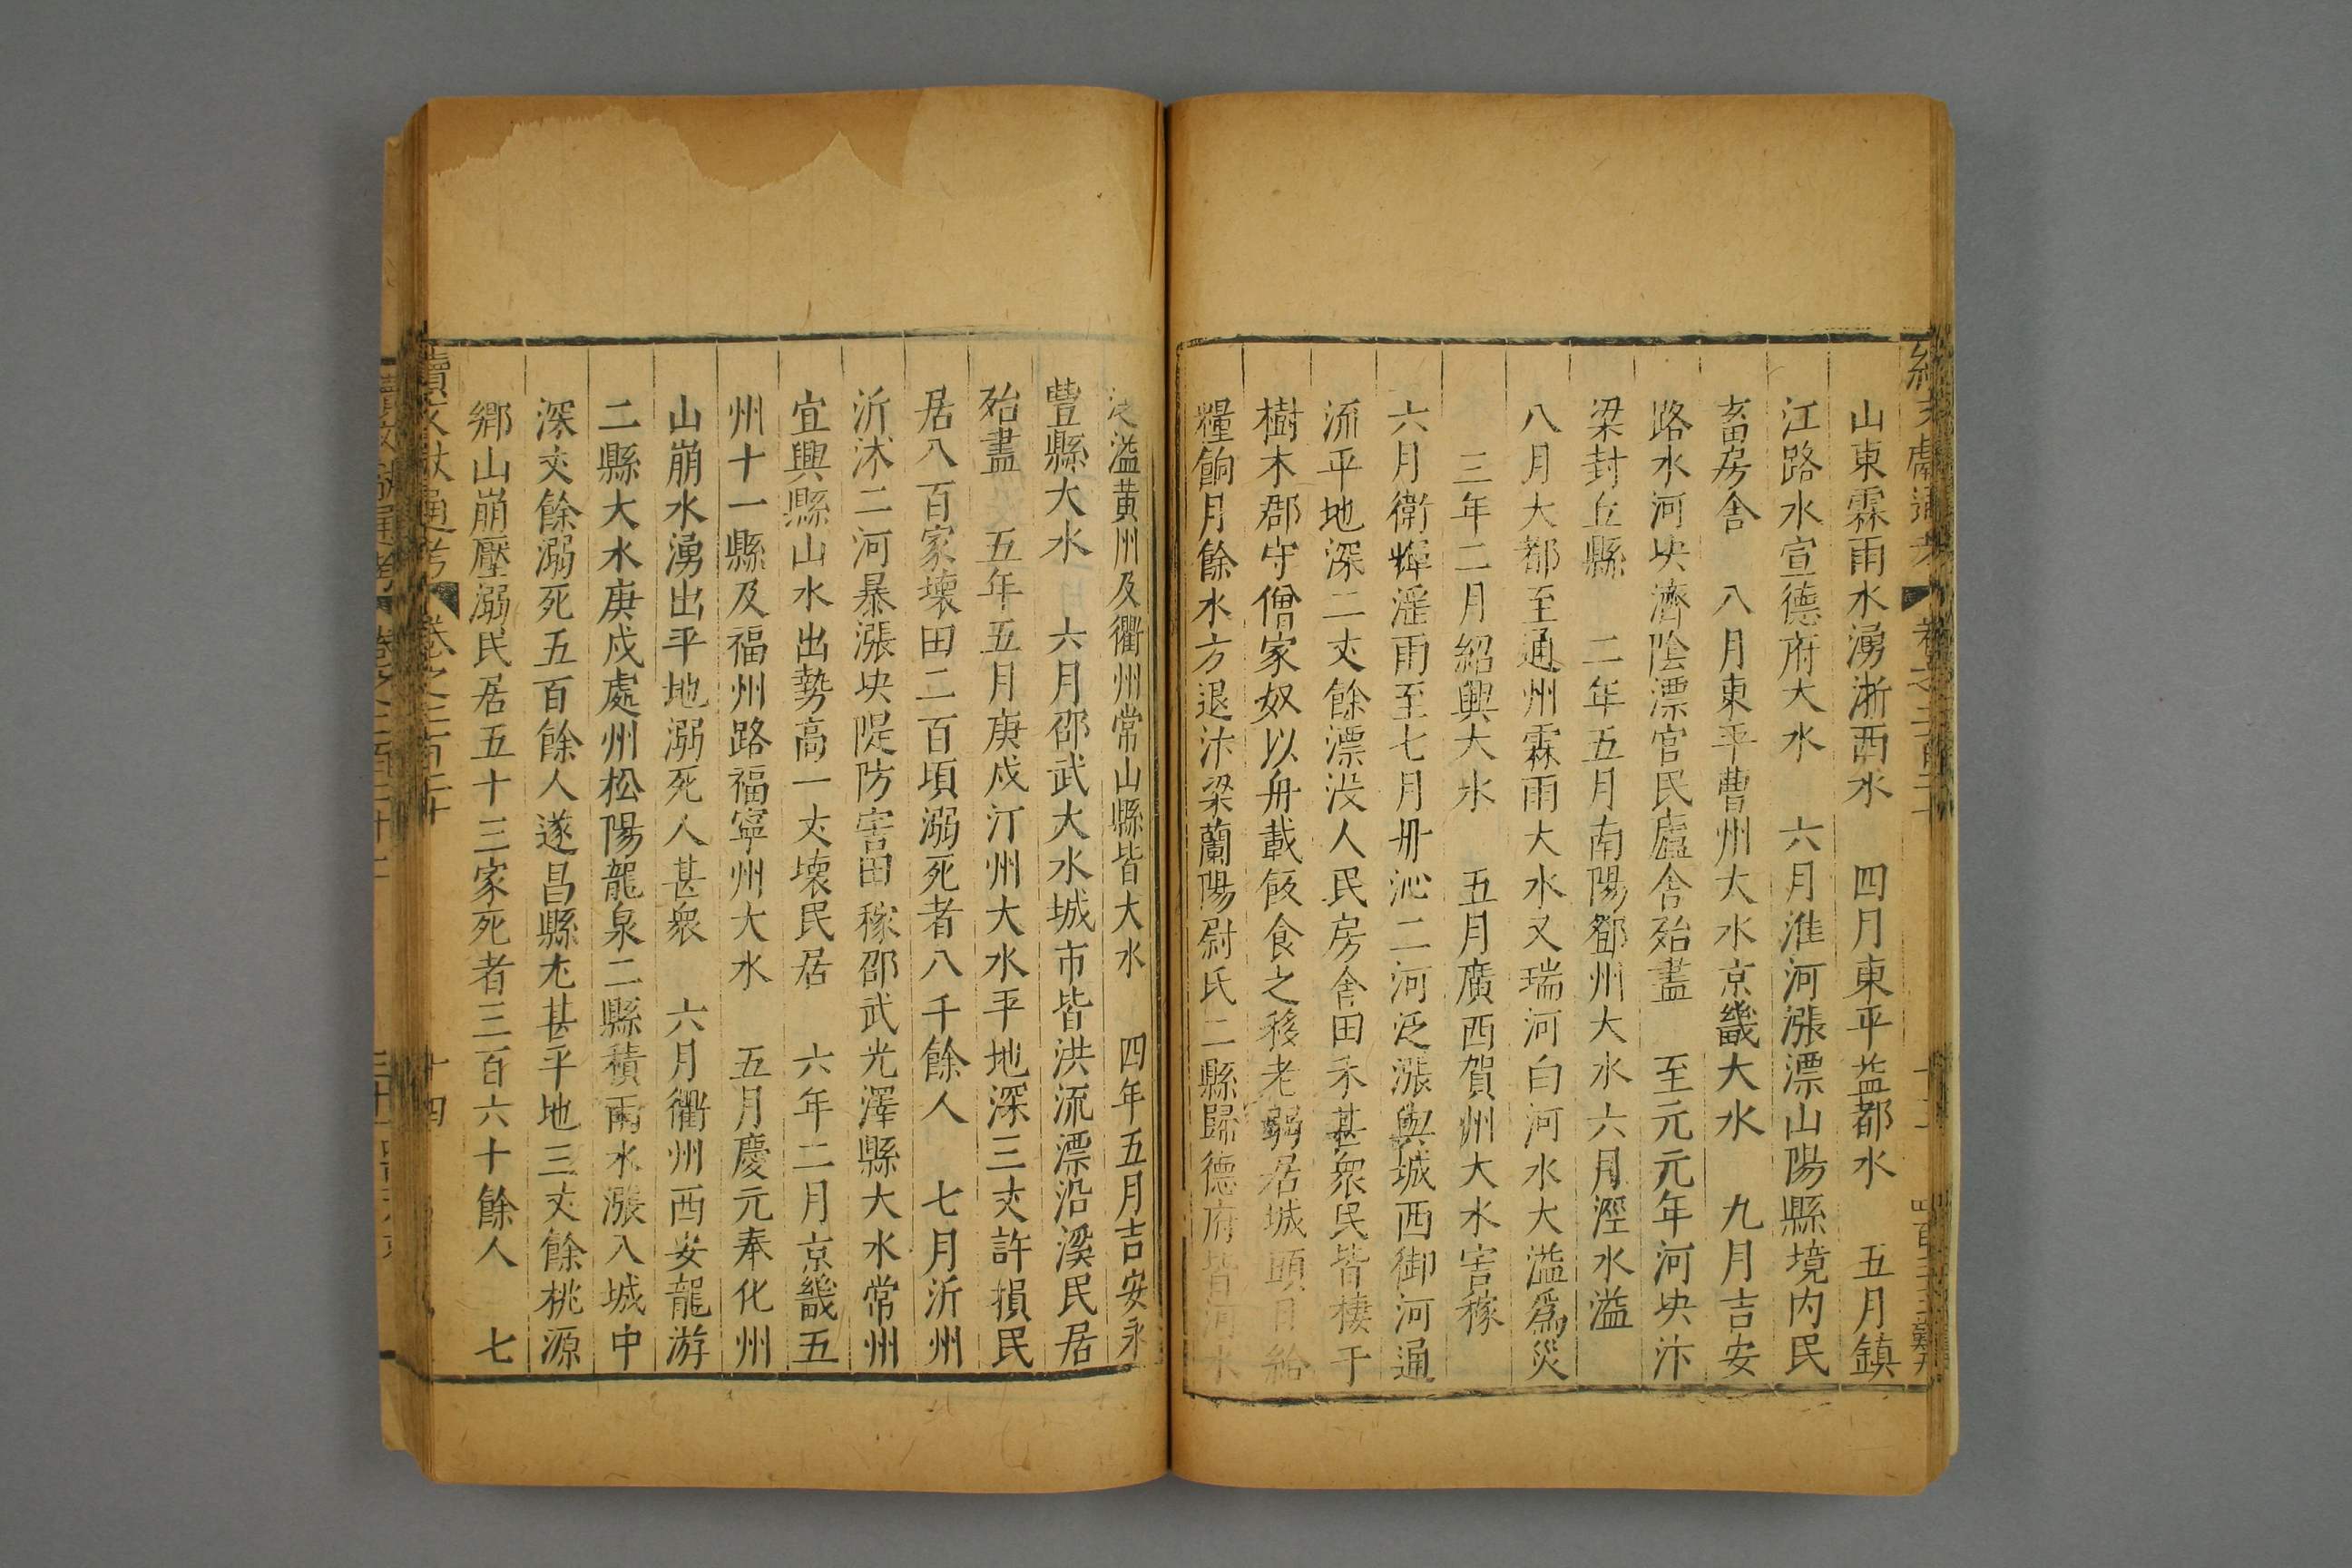 山東霖雨水湧浙西水　四月東平益都水　五月鎮
江路水宣德府大水　六月淮河漲漂山陽縣境內民
畜房舍　八月東平曹州大水京畿大水　九月吉安
路水河决濟陰漂官民廬舍殆盡　至元元年河决汴
梁封丘縣　二年五月南陽鄧州大水六月涇水溢
八月大都至通州霖雨大水又瑞河白河水大溢爲災
三年二月紹興大水　五月廣西賀州大水害稼
六月衛輝淫雨至七月丹沁二河泛漲與城西御河通
流平地深二丈餘漂没人民房舍田禾甚衆民皆棲于
樹木郡守僧家奴以舟載飯食之移老弱居城頭日給
糧餉月餘水方退汴梁蘭陽尉氏二縣歸德府皆河水
泛溢黄州及衢州常山縣皆大水　四年五月吉安永
豐縣大水　六月邵武大水城市皆洪流漂沿溪民居
殆盡　五年五月庚戍汀州大水平地深三丈許損民
居八百家壞田二百頃溺死者八千餘人　七月沂州
沂沭二河暴漲决隄防害田稼邵武光澤縣大水常州
宜興縣山水出勢高一丈壞民居　六年二月京畿五
州十一縣及福州路福寧州大水　五月慶元奉化州
山崩水湧出平地溺死人甚衆　六月衢州西安龍游
二縣大水庚戍處州松陽龍泉二縣積雨水漲入城中
深丈餘溺死五百餘人遂昌縣尤甚平地三丈餘桃源
鄉山崩壓溺民居五十三家死者三百六十餘人　七
續文獻通考　卷之二百二十　十四